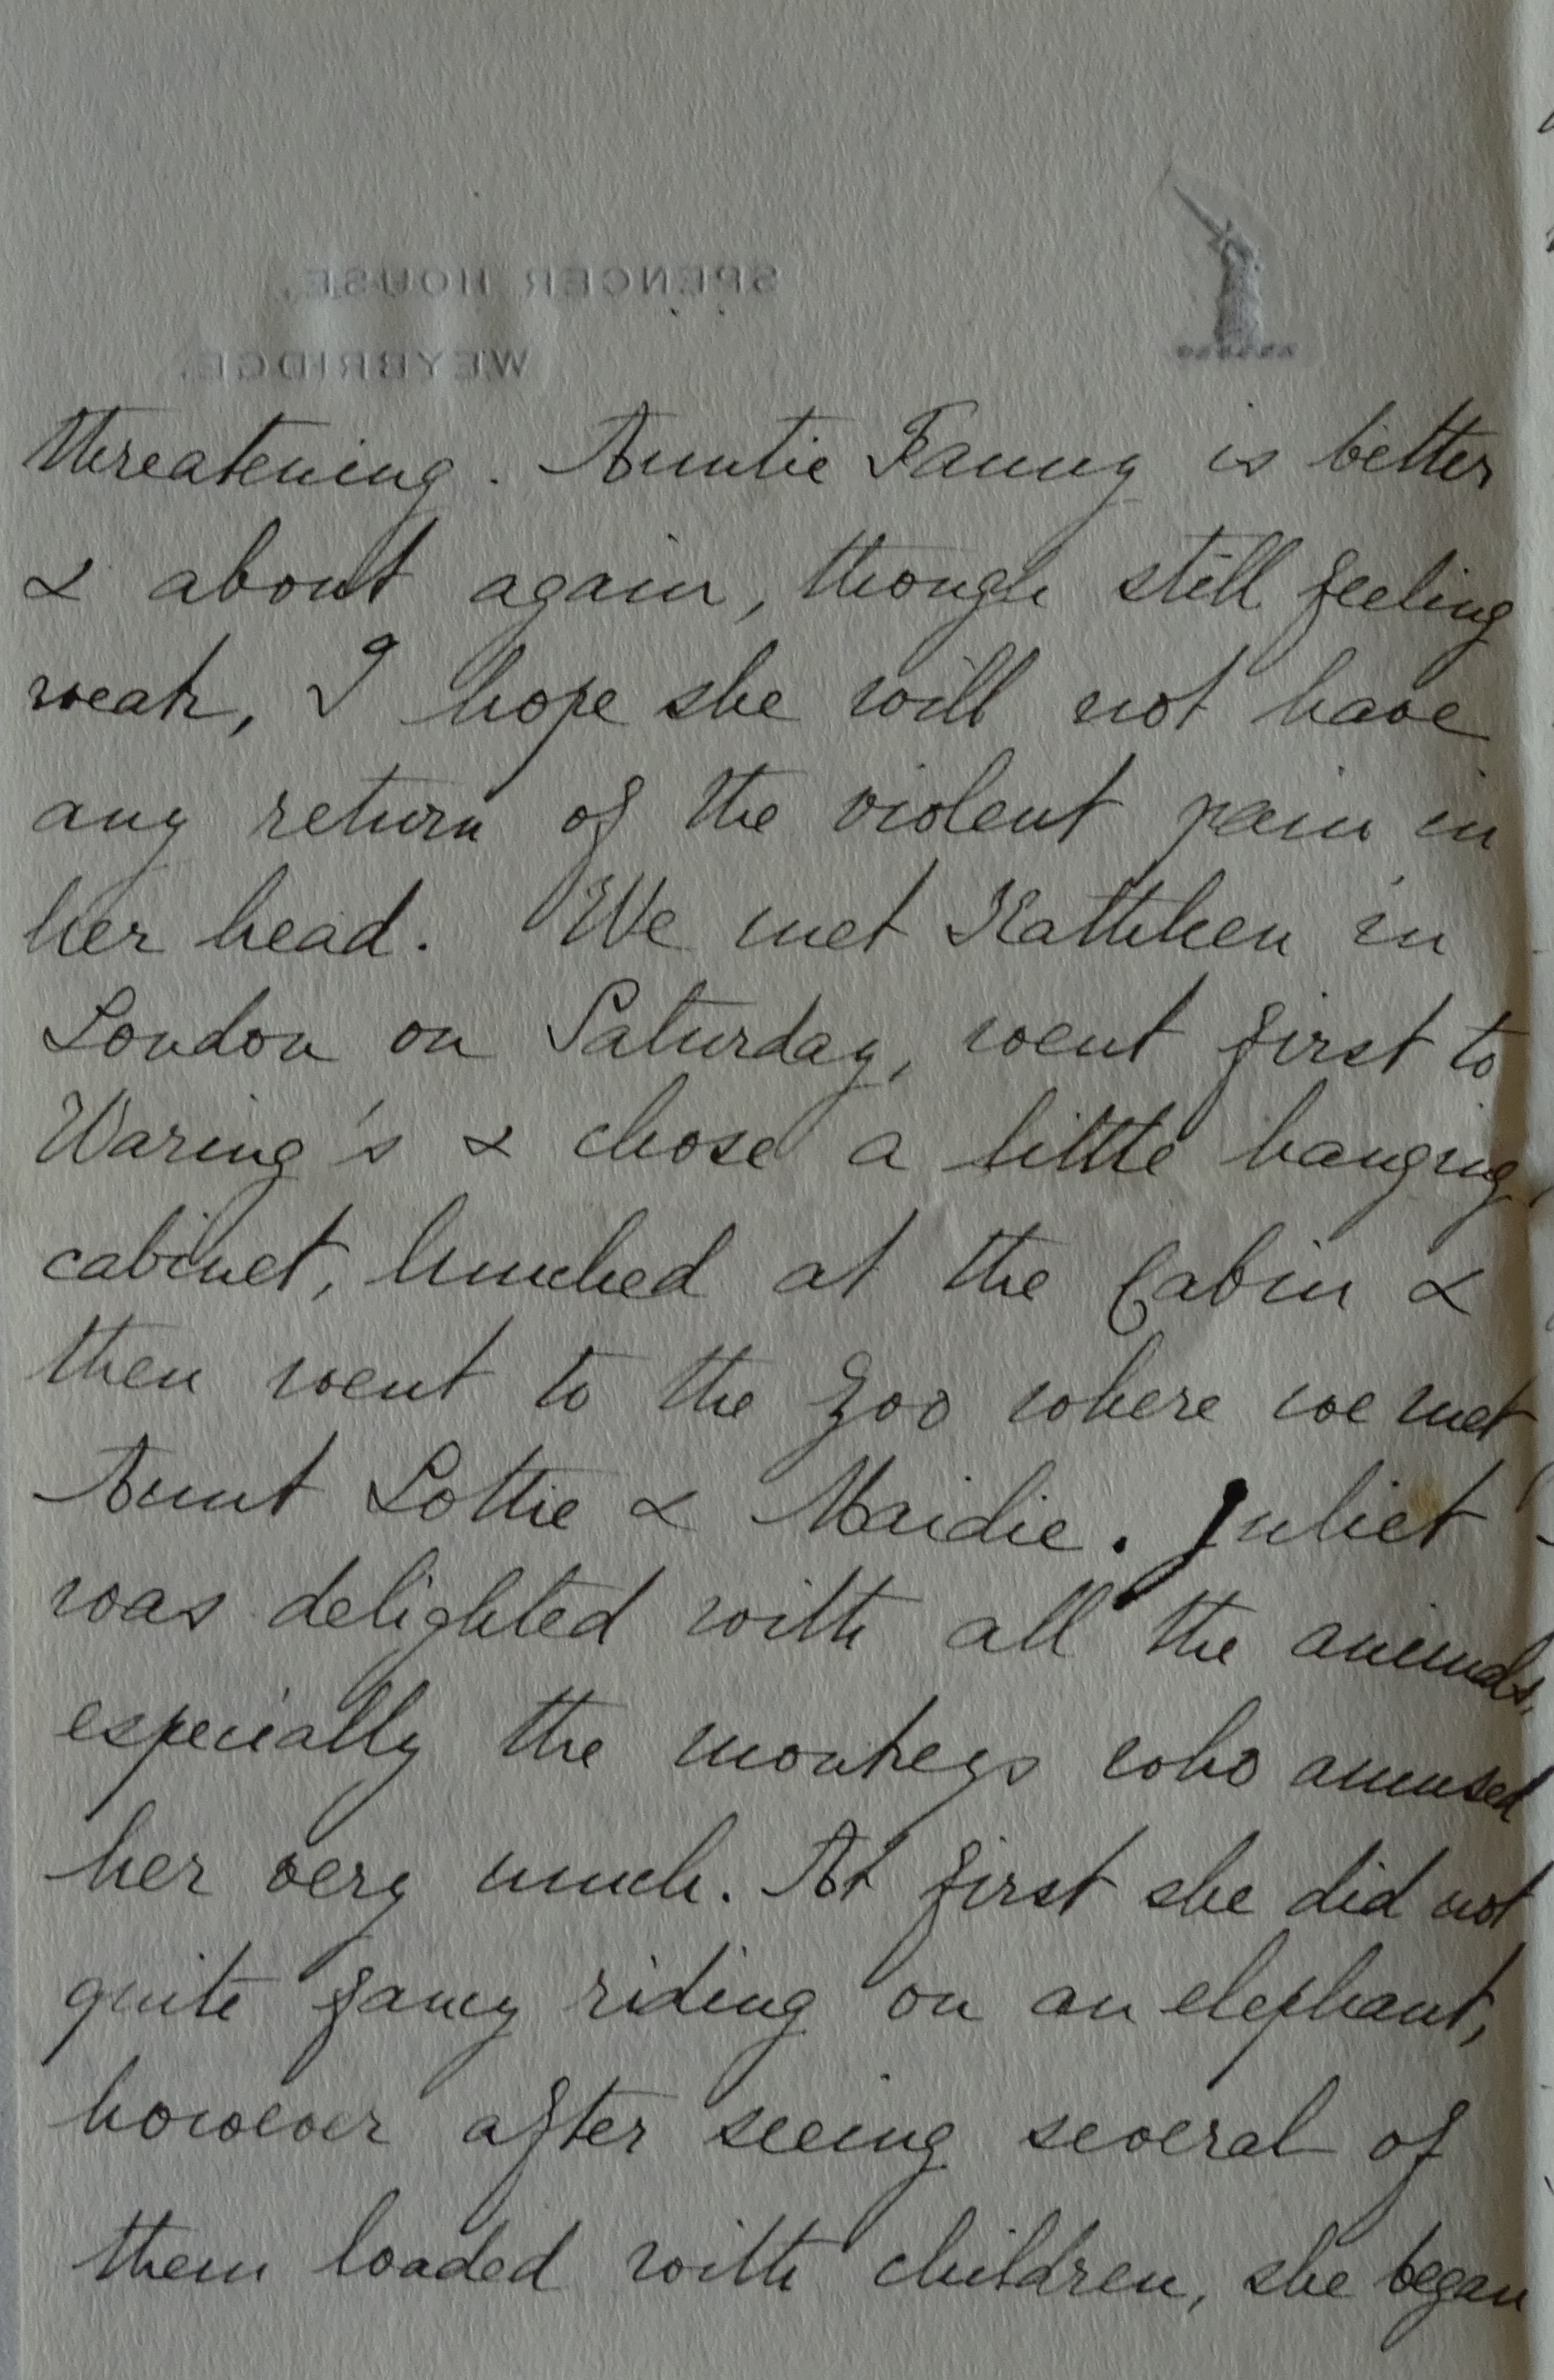 SPENCER HOUSE,
WEYBRIDGE.
threatening. Auntie Fanny is better
& about again, though still feeling
weak, I hope she will not have
any return of the violent pain in
her head. We met Kathleen in
London on Saturday, went first to
Waring's & chose a little hanging
cabinet, lunched at the Cabin &
then went to the Zoo where we met
Aunt Lottie & Maidie. Juliet
was delighted with all the animals,
especially the monkeys who amused
her very much. At first she did not
quite fancy riding on an elephant,
however after seeing several of
them loaded with children, she began